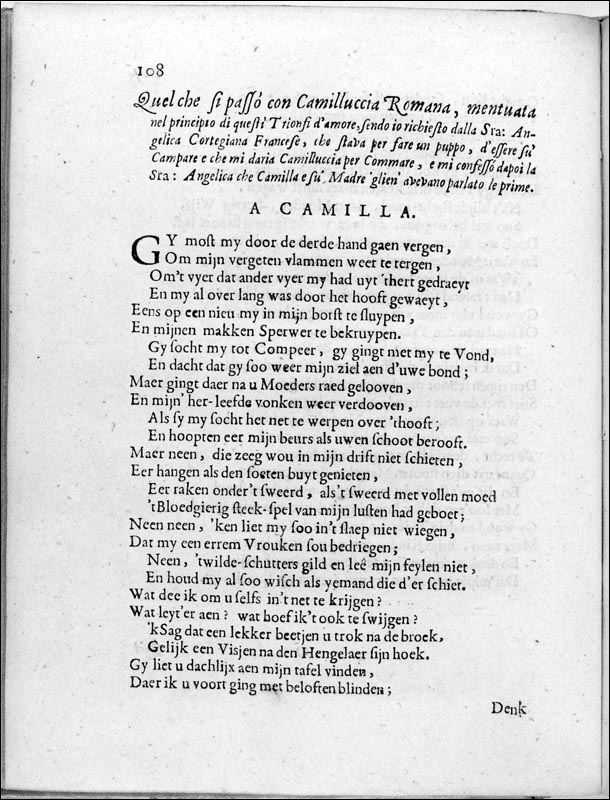 108
Quel che si passó con Camilluccia Romana, mentuata
nel principio di questi Trionfi d'amore, sendo io richiesto dalla Sra: An-
gelica Cortegiana Francese, che stava per fare un puppo, d'essere su'
Campare e che mi daria Camilluccia per Commare, e mi confessò dapoi la
Sra: Angelica che Camilla e su' Madre 'glien' avevano parlato le prime.
A CAMILLA.
GY most my door de derde hand gaen vergen,
Om mijn vergeten vlammen weer te tergen,
Om't vyer dat ander vyer my had uyt 'thert gedraeyt
En my al over lang was door het hooft gewaeyt,
Eens op een nieu my in mijn borst te sluypen,
En mijnen makken Sperwer te bekruypen.
Gy socht my tot Compeer, gy gingt niet my te Vond,
En dacht dat gy soo weer mijn ziel aen d'uwe bond;
Maer gingt daer na u Moeders raed gelooven,
En mijn' her-leefde vonken weer verdooven,
Als sy my socht het net te werpen over 'thooft;
En hoopten eer mijn beurs als uwen schoot berooft.
Maer neen, die zeeg wou in mijn drift niet schieten,
Eer hangen als den soeten buyt genieten,
Eer raken onder't sweerd, als't sweerd met vollen moed
'tBloedgierig steek-spel van mijn lusten had geboet;
Neen neen, 'ken liet my soo in't slaep niet wiegen,
Dat my een errem Vrouken sou bedriegen;
Neen, 'twilde-schutters gild en leê mijn feylen niet,
En houd my al soo wisch als yemand die d'er schiet.
Wat dee ik om u selfs in't net te krijgen?
Wat leyt'er aen? wat hoef ik't ook te swijgen?
'kSag dat een lekker beetjen u trok na de broek,
Gelijk een Visjen na den Hengelaer sijn hoek.
Gy liet u dachlijx aen mijn tafel vinden,
Daer ik u voort ging met beloften blinden;
Denk